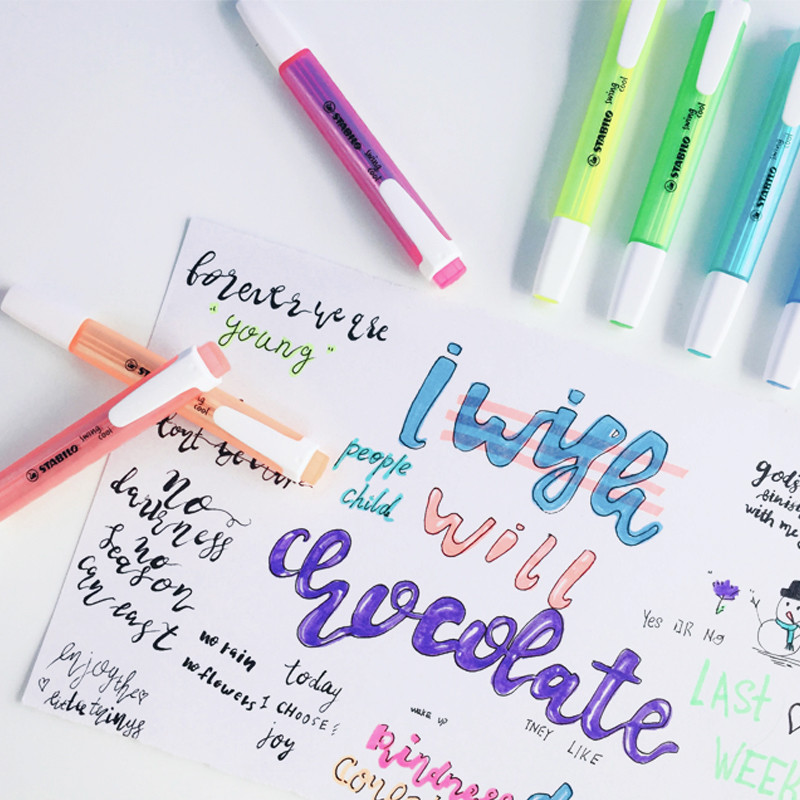 STABILO swing cool
STABILO swing cool
STABILO swing cool
STABILO swing cool
forever we are
"young"
swing cool
STABILO swing cool
i wish
people
child
will
chocolate
No
darkness
no
season
can east
gods
with me
Yes OR No
no rain
no flowers
enjoy the
little things
today
I CHOOSE
joy
wake up
THEY LIKE
LAST
WEEK
kindness